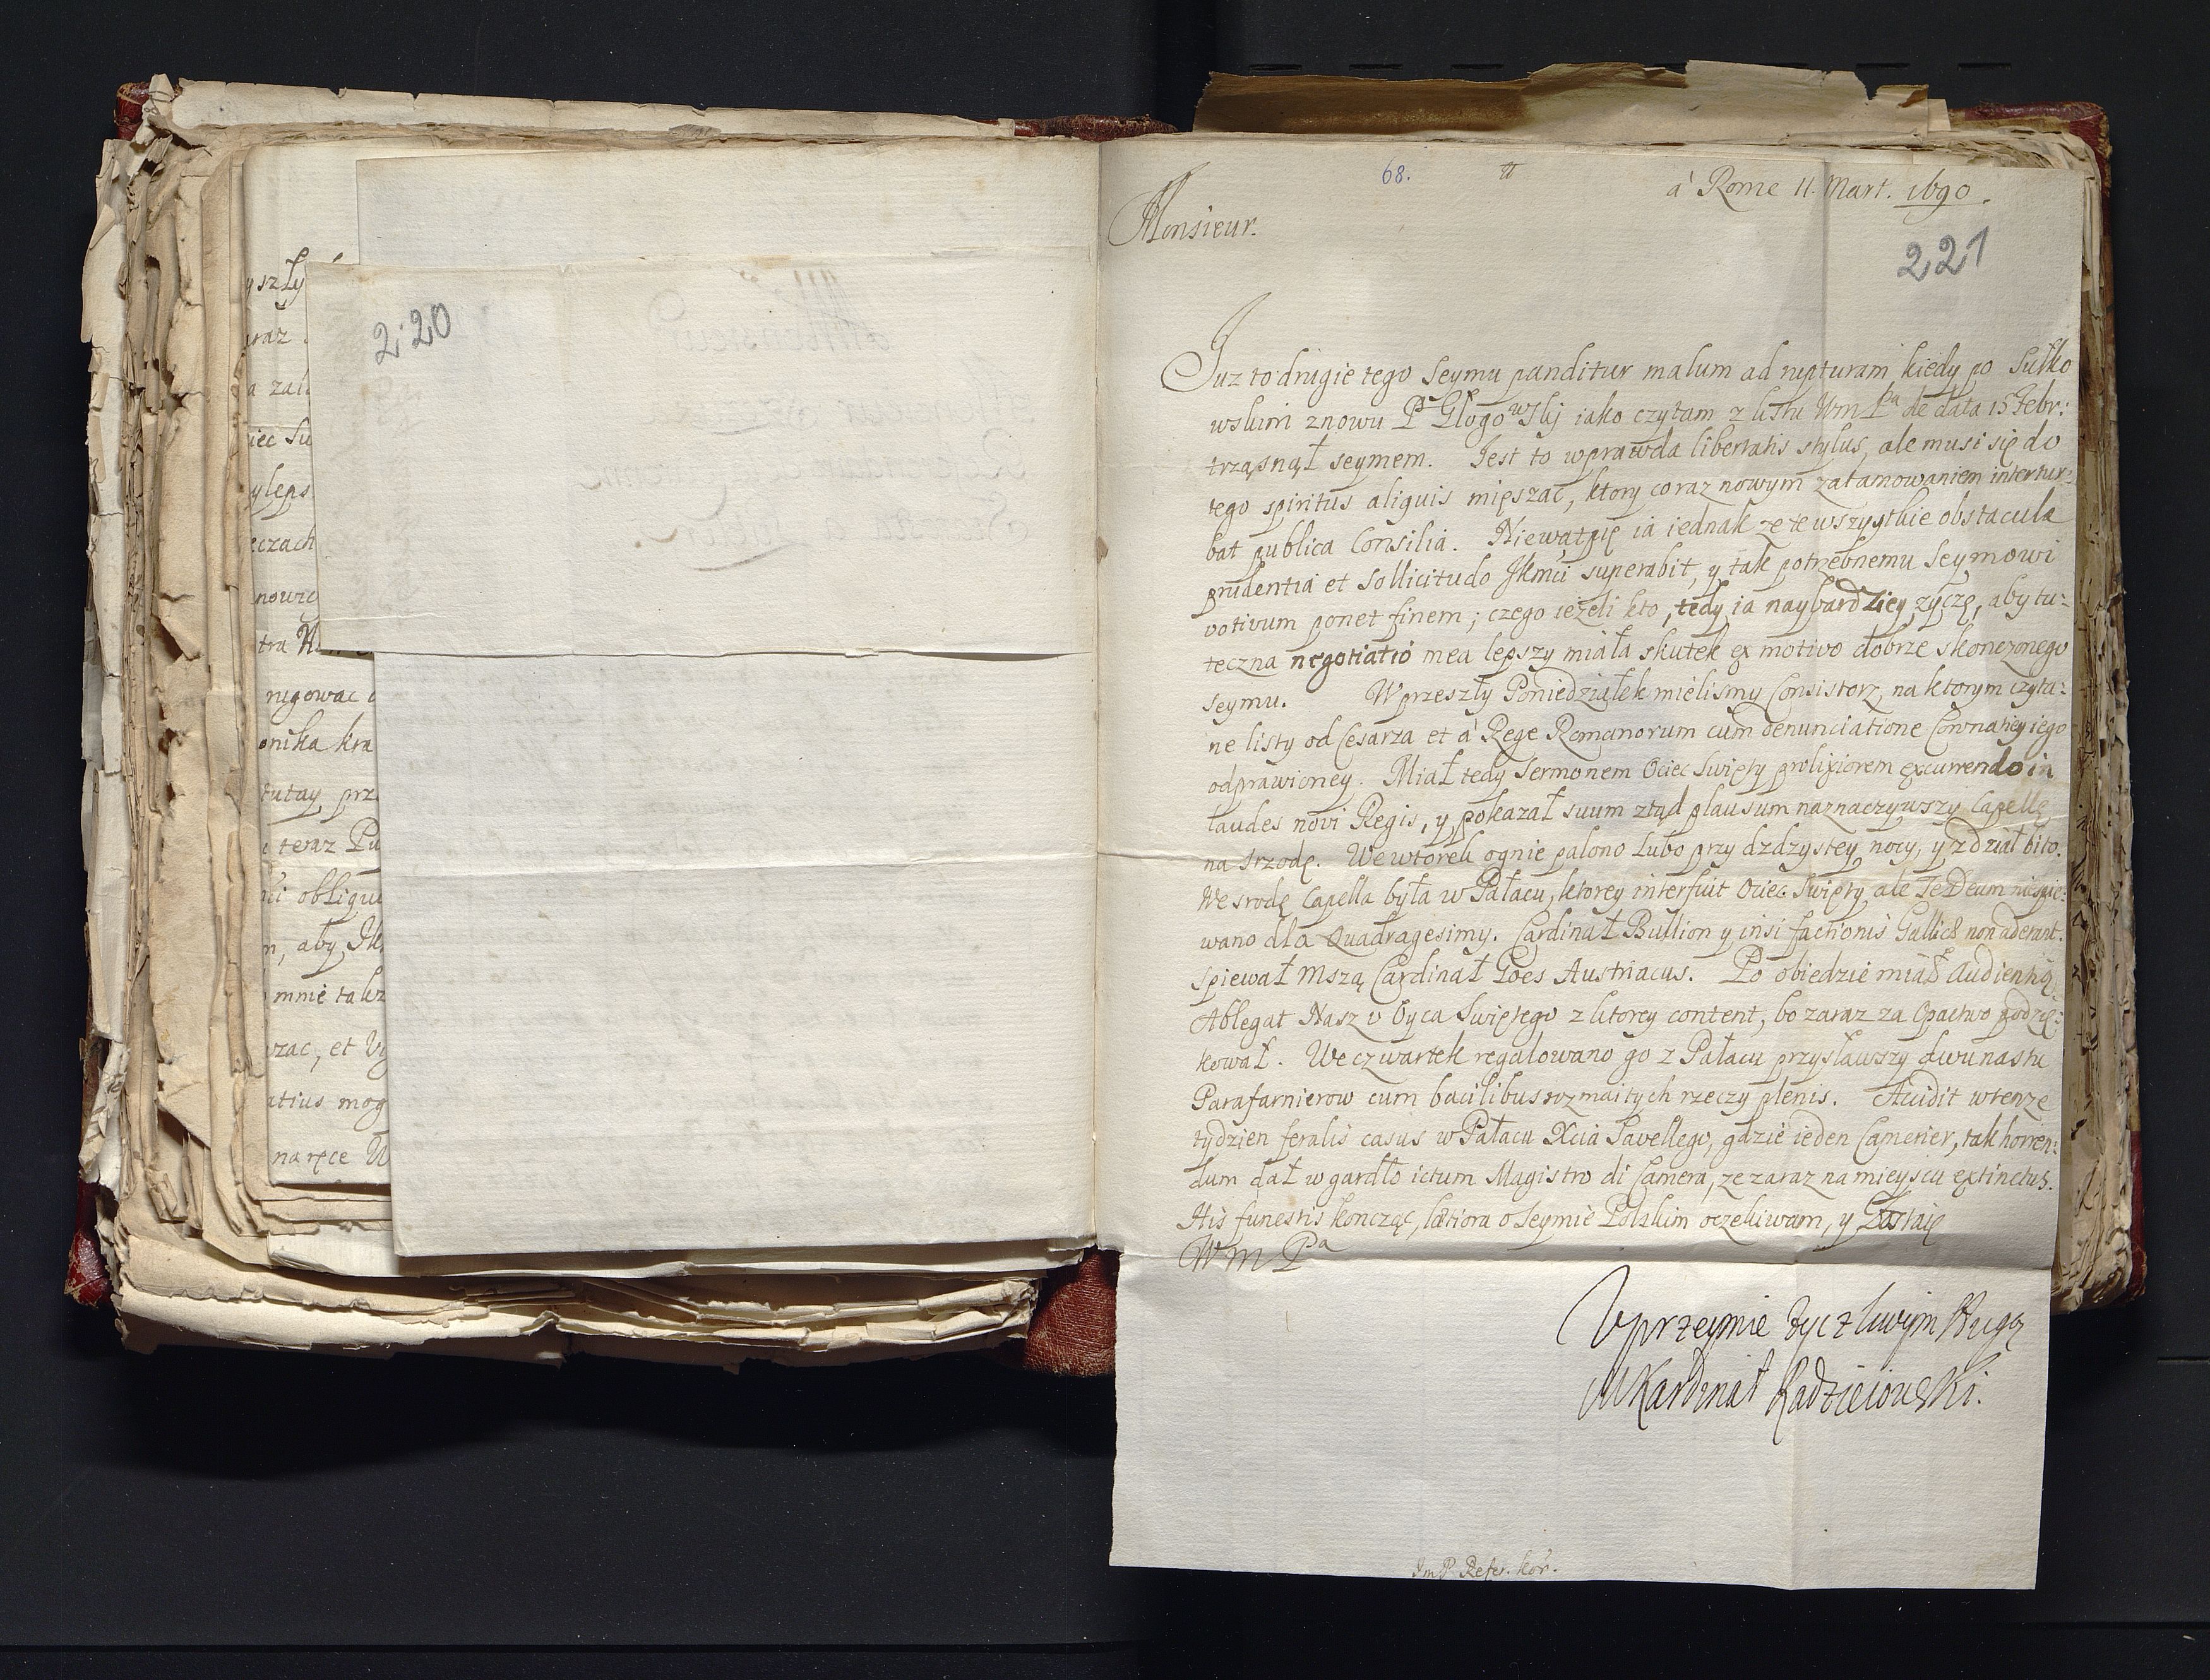 yszły
raz
a zale
iec Su
yleps
eczach
nowic
tra
rugowac
onika kra
tutay prz
teraz Pu
obligu
aby
mnie takz
zac, et
atius mog
na ręce
2.20
68.
à Rome 11. Mart. 1690.
Monsieur.
221
Juz to drugie tego Seymu panditur malum ad rupturam kiedy po Sułko
wskim znowu P Głogowskj iako czytam z listu Wm Pa de data 15 Febr:
trząsnął seymem. Jest to wprawda libertatis stylus, ale musi się do
tego spiritus aliquis mięszac, ktory coraz nowym zatamowaniem intertur-
bat publica Consilia. Niewątpię ia iednak ze te wszystkie obstacula
prudentia et sollicitudo JKmci superabit, y tak potrzebnemu Seymowi
votivum ponet finem; czego ieżeli kto, tedy ia naybardziey zyczę, aby tu-
teczna negotiatio mea lepszy miała skutek ex motivo dobrze skonczonego
Seymu. W przeszły Poniedziałek mielismy Consistorz, na ktorym czyta-
ne listy od Cesarza et à Rege Romanorum cum denunciatione Coronatiey iego
odprawioney. Miał tedy Sermonem Ociec Swięty prolixiorem excurrendo in
laudes novi Regis, y pokazał suum ztąd plausum naznaczywszy Capellę
na srzodę. We wtorek ognie palono lubo przy dzdzystey nocy, y z dział bito.
We srodę Capella była w Pałacu, ktorey interfuit Ociec Swięty, ale Te Deum nie spie-
wano dla Quadragesimy. Cardinał Bullion y insi factionis Gallicæ non aderant.
spiewał Mszą Cardinał Goes Austriacus. Po obiedzie miał Audientią
Ablegat Nasz v Oyca Swiętego z ktorey content, bo zaraz za Opactwo podzię-
kował. We czwartek regalowano go z Pałacu przysławszy dwunastu
Parafarnierow cum bacilibus rozmaitych rzeczy plenis. Accidit w tenze
tydzien feralis casus w Pałacu Xcia Savellego, gdzie ieden Camerier, tak horren-
dum dał w gardło ictum Magistro di Camera, ze zaraz na mieyscu extinctus.
His funestis koncząc, lætiora o Seymie Polskim oczekiwam, y Zostaię
Wm Pa
Vprzeymie zyczliwym sługą
M Kardinał Radzieiowski.
JmP Refer. Kor.